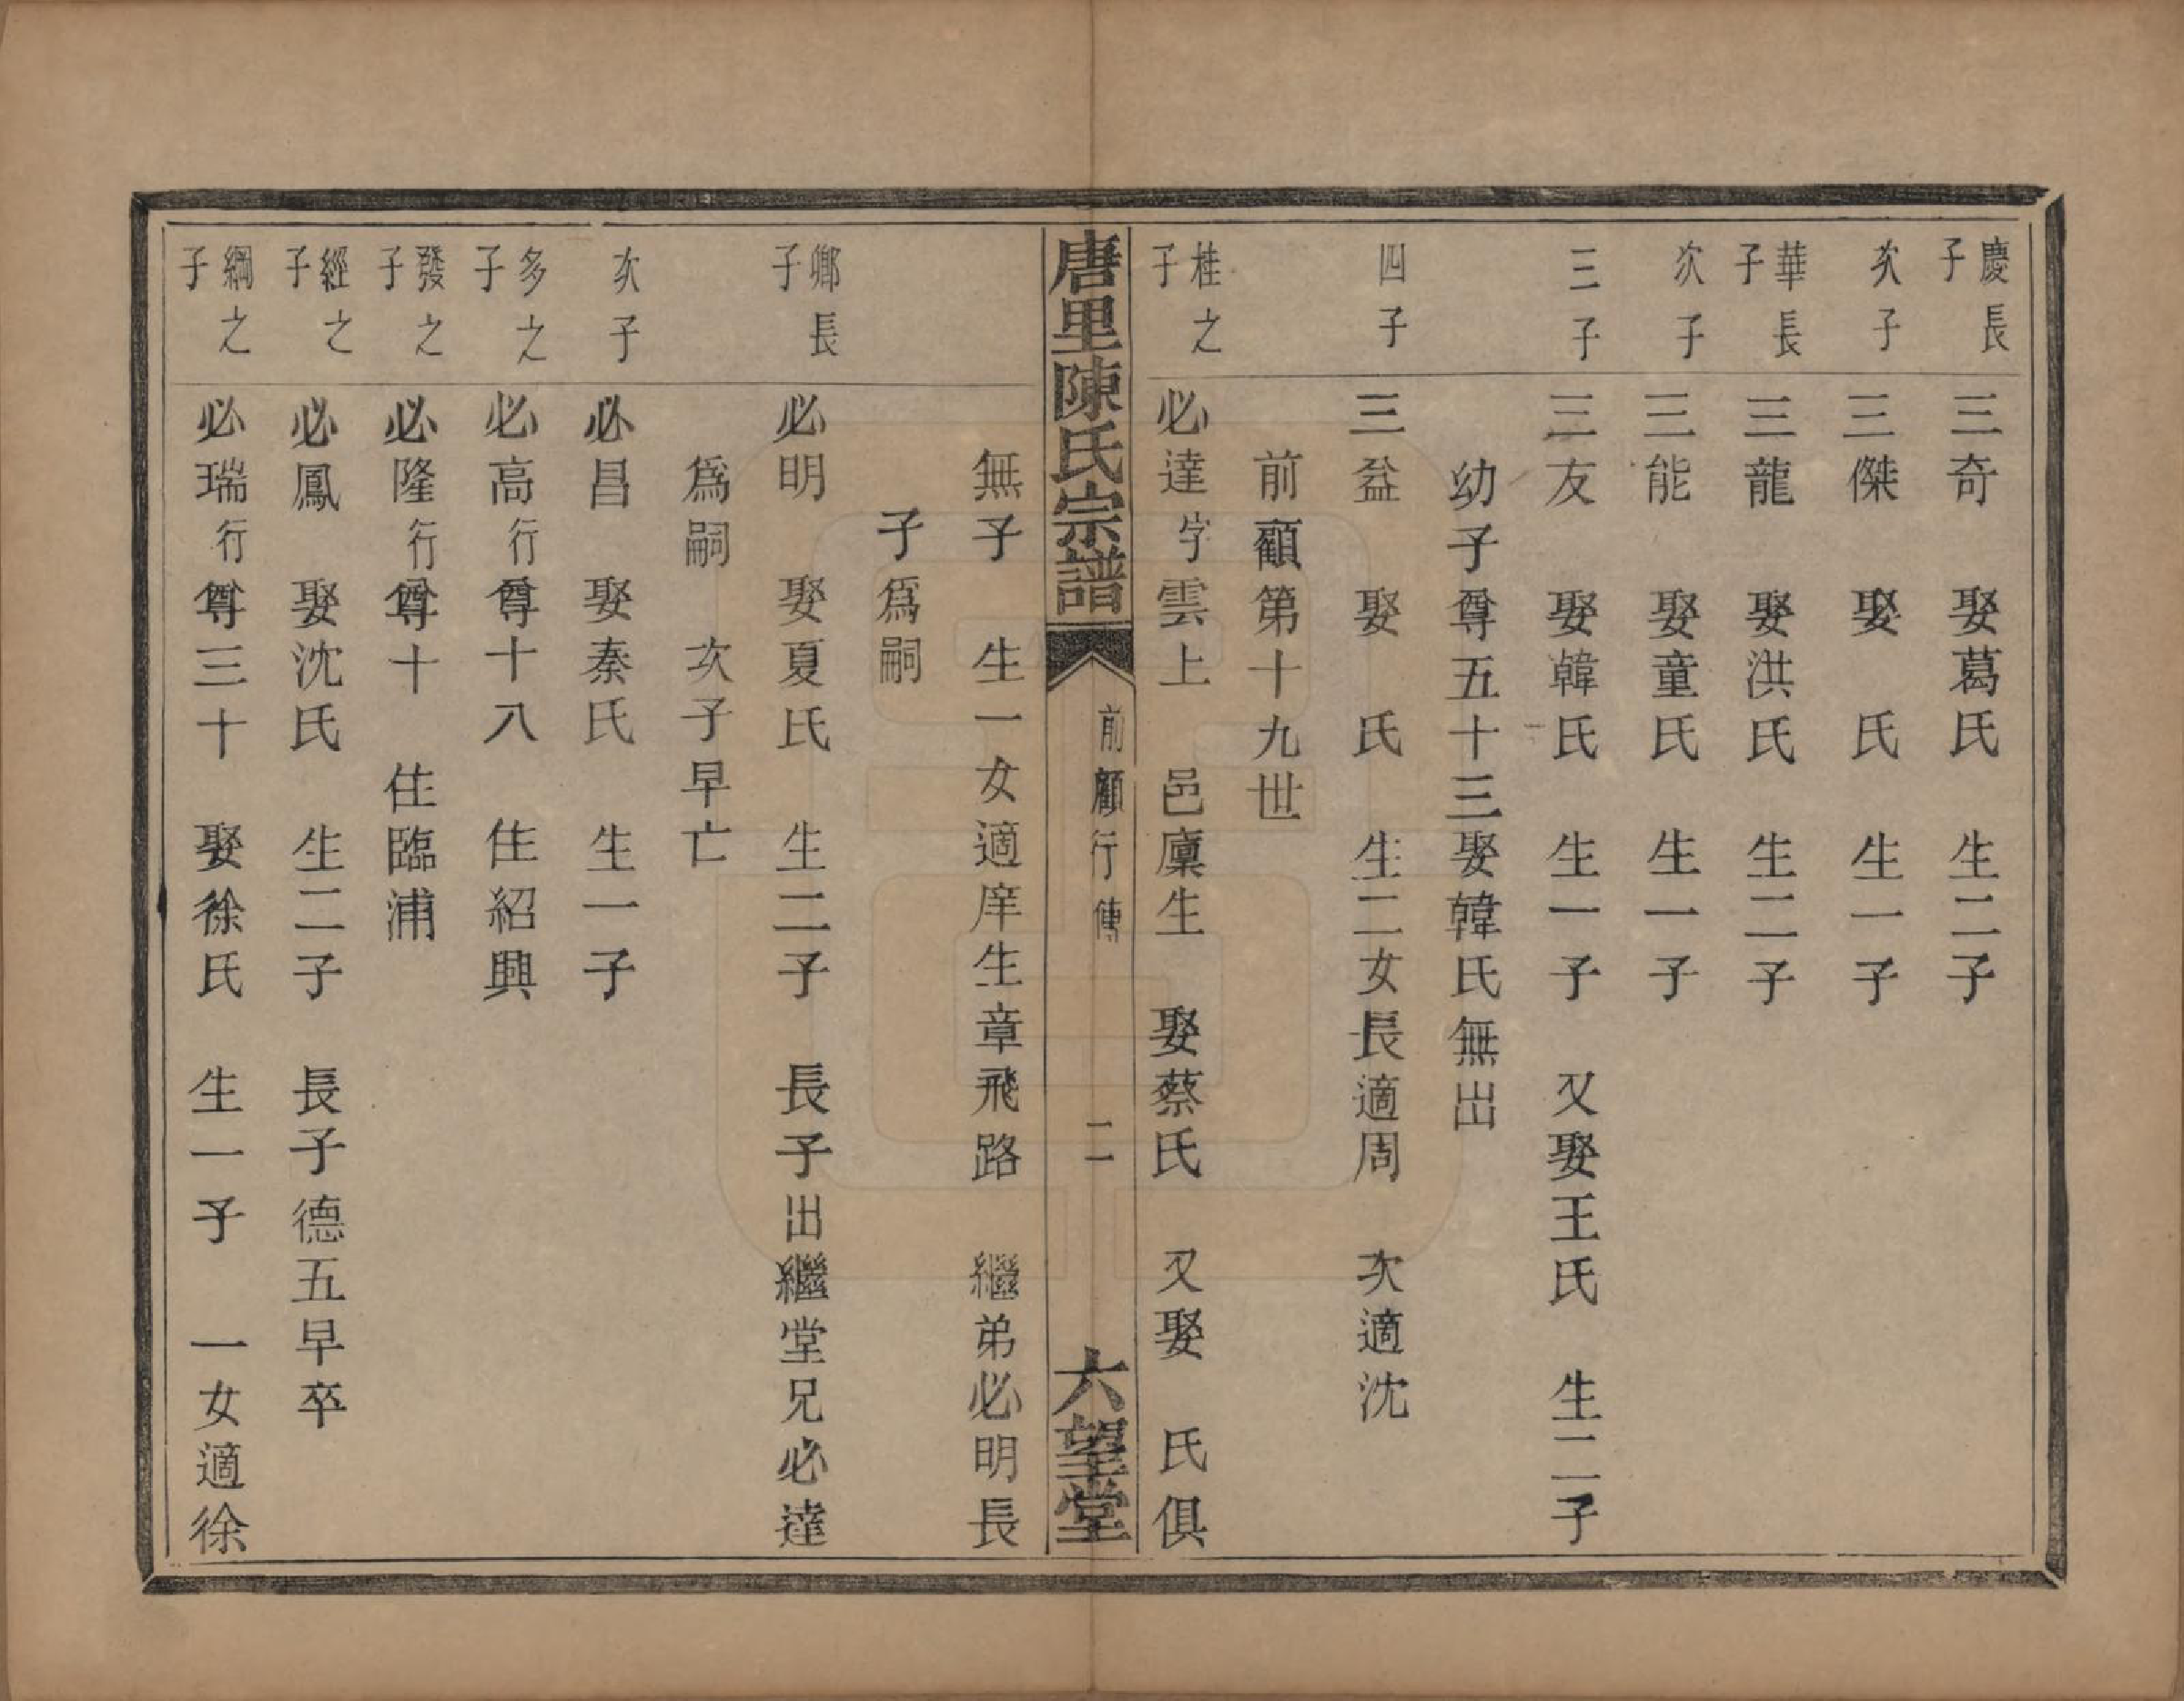 慶長子 三奇 娶葛氏 生二子
次子 三傑 娶 氏 生一子
華長子 三龍 娶洪氏 生二子
次子 三能 娶童氏 生一子
三子 三友 娶韓氏 生一子 又娶王氏 生二子
幼子尊五十三娶韓氏無出
四子 三益 娶 氏 生二女長適周 次適沈
前顧第十九世
桂之子 必達字雲上 邑廩生 娶蔡氏 又娶 氏俱
唐里陳氏宗譜 前顧行傳 二 六望堂
無子 生一女適庠生章飛路 繼弟必明長
子爲嗣
鄉長子 必明 娶夏氏 生二子 長子出繼堂兄必達
爲嗣 次子早亡
次子 必昌 娶秦氏 生一子
多之子 必高行尊十八 住紹興
發之子 必隆行尊十 住臨浦
經之子 必鳳 娶沈氏 生二子 長子德五早卒
綱之子 必瑞行尊三十 娶徐氏 生一子 一女適徐